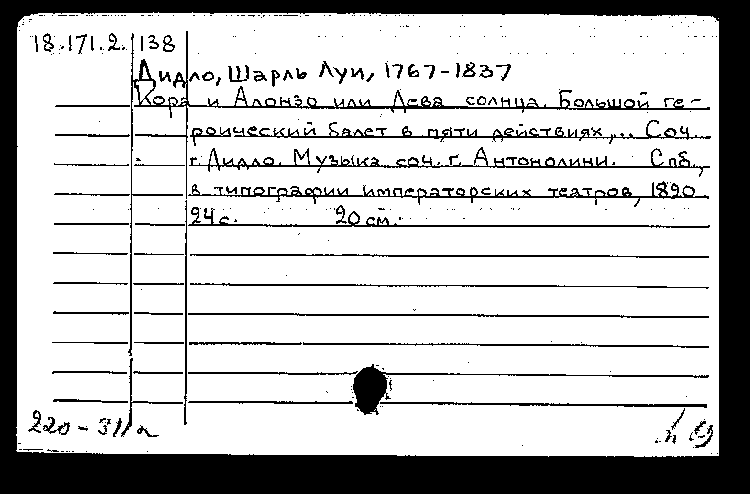 18.171.2. 138
Дидло, Шарль Луи, 1767-1837
Кора и Алонзо или Дева солнца. Большой ге-
роический балет в пяти действиях,.. Соч.
г. Дидло. Музыка соч. г. Антонолини. Спб.,
в типографии императорских театров, 1820
24 с. 20 см.
220-311